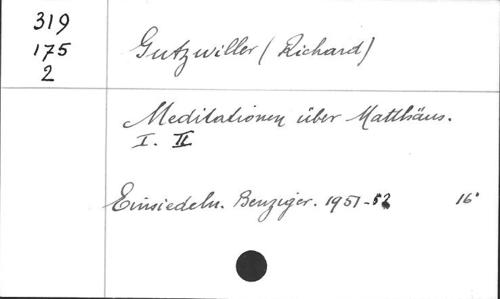 319
175
2
Gutzwiller (Richard)
Meditationen über Matthäus.
I. II
Einsiedeln. Benziger. 1951-52 16°